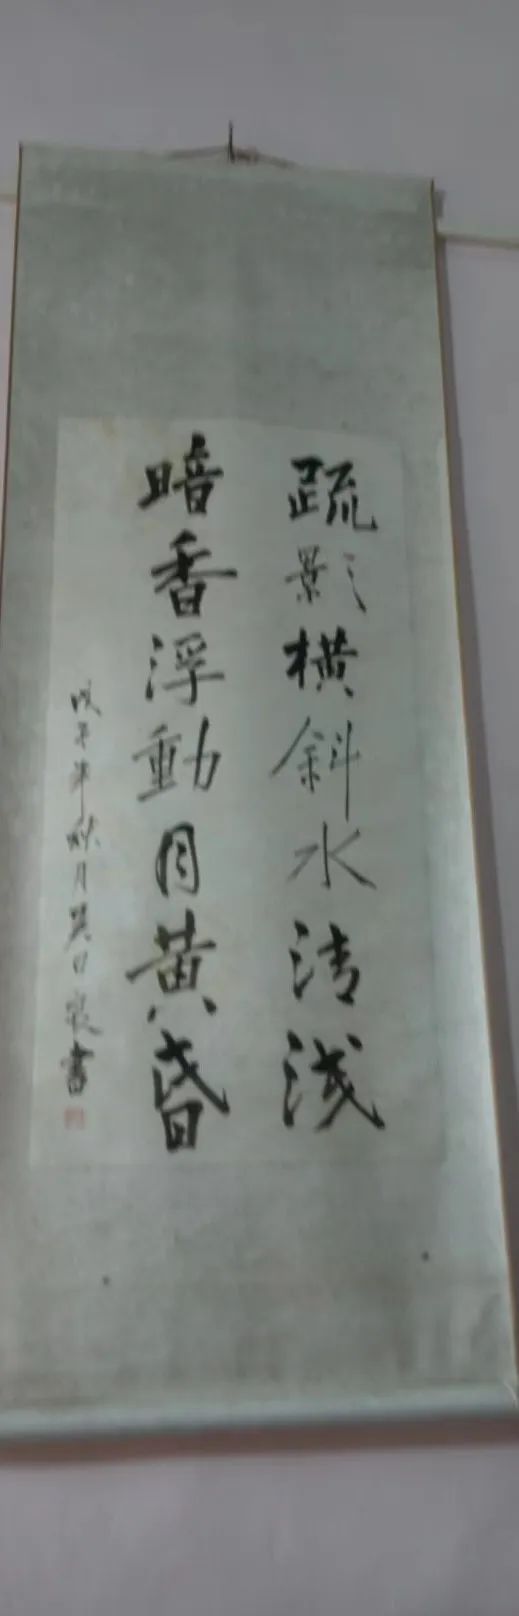 疏影橫斜水清淺
暗香浮動月黃昏
戊午年秋月吳日書